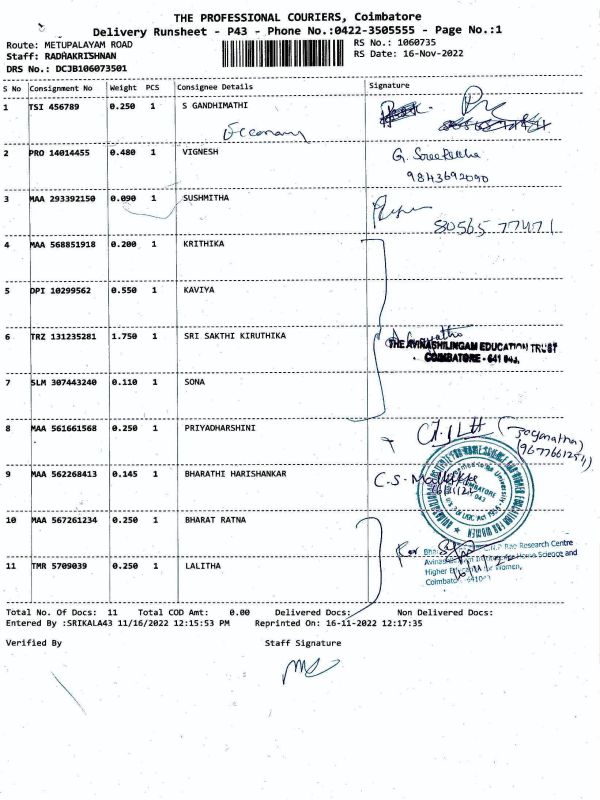 THE PROFESSIONAL COURIERS, Coimbatore
Delivery Runsheet - P43 - Phone No.:0422-3505555 - Page No.:1
Route: METUPALAYAM ROAD
RS No.: 1060735
Staff: RADHAKRISHNAN
RS Date: 16-Nov-2022
DRS No.: DCJB106073501
S No Consignment No Weight PCS Consignee Details Signature
1 TSI 456789 0.250 1 S GANDHIMATHI
Economy
2 PRO 14014455 0.480 1 VIGNESH
9843692090
3 MAA 293392150 0.090 1 SUSHMITHA
80565 77471
4 MAA 568851918 0.200 1 KRITHIKA
5 DPI 10299562 0.550 1 KAVIYA
6 TRZ 131235281 1.750 1 SRI SAKTHI KIRUTHIKA
THE AVINASHILINGAM EDUCATION TRUST
COIMBATORE - 641 043.
7 SLM 307443240 0.110 1 SONA
8 MAA 561661568 0.250 1 PRIYADHARSHINI
9 MAA 562268413 0.145 1 BHARATHI HARISHANKAR
C.S.
10 MAA 567261234 0.250 1 BHARAT RATNA
Rao Research Centre
Home Science and
Higher Women,
11 TMR 5709039 0.250 1 LALITHA
Total No. Of Docs: 11 Total COD Amt: 0.00 Delivered Docs: Non Delivered Docs:
Entered By :SRIKALA43 11/16/2022 12:15:53 PM Reprinted On: 16-11-2022 12:17:35
Verified By Staff Signature